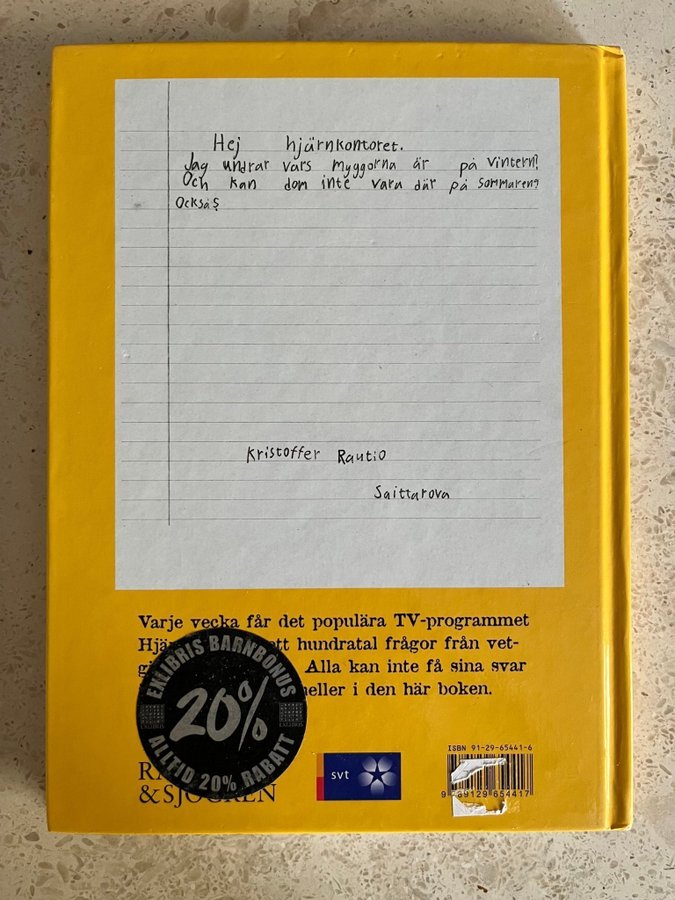 Hej hjärnkontoret.
Jag undrar vars myggorna är på vintern?
Och kan dom inte vara där på sommaren?
Också?
Kristoffer Rautio
Saittarova
Varje vecka får det populära TV-programmet
Hjä ett hundratal frågor från vet-
gi Alla kan inte få sina svar
heller i den här boken.
EXLIBRIS BARNBONUS
20%
EXLIBRIS EXLIBRIS
ALLTID 20% RABATT
RA
& SJÖGREN
svt
ISBN 91-29-65441-6
9 789129 654417